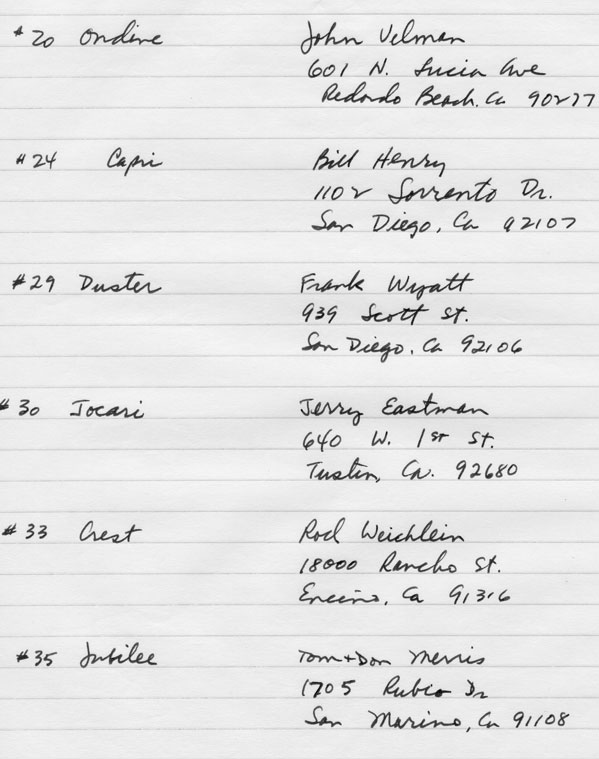 #20 Ondine John Velman
601 N. Lucia Ave
Redondo Beach, Ca 90277
#24 Capri Bill Henry
1102 Sorrento Dr.
San Diego, Ca 92107
#29 Duster Frank Wyatt
939 Scott St.
San Diego, Ca 92106
#30 Jocari Jerry Eastman
640 W. 1st St.
Tustin, Ca. 92680
#33 Crest Rod Weichlein
18000 Rancho St.
Encino, Ca 91316
#35 Jubilee Tom + Don Merris
1705 Rubio Dr
San Marino, Ca 91108